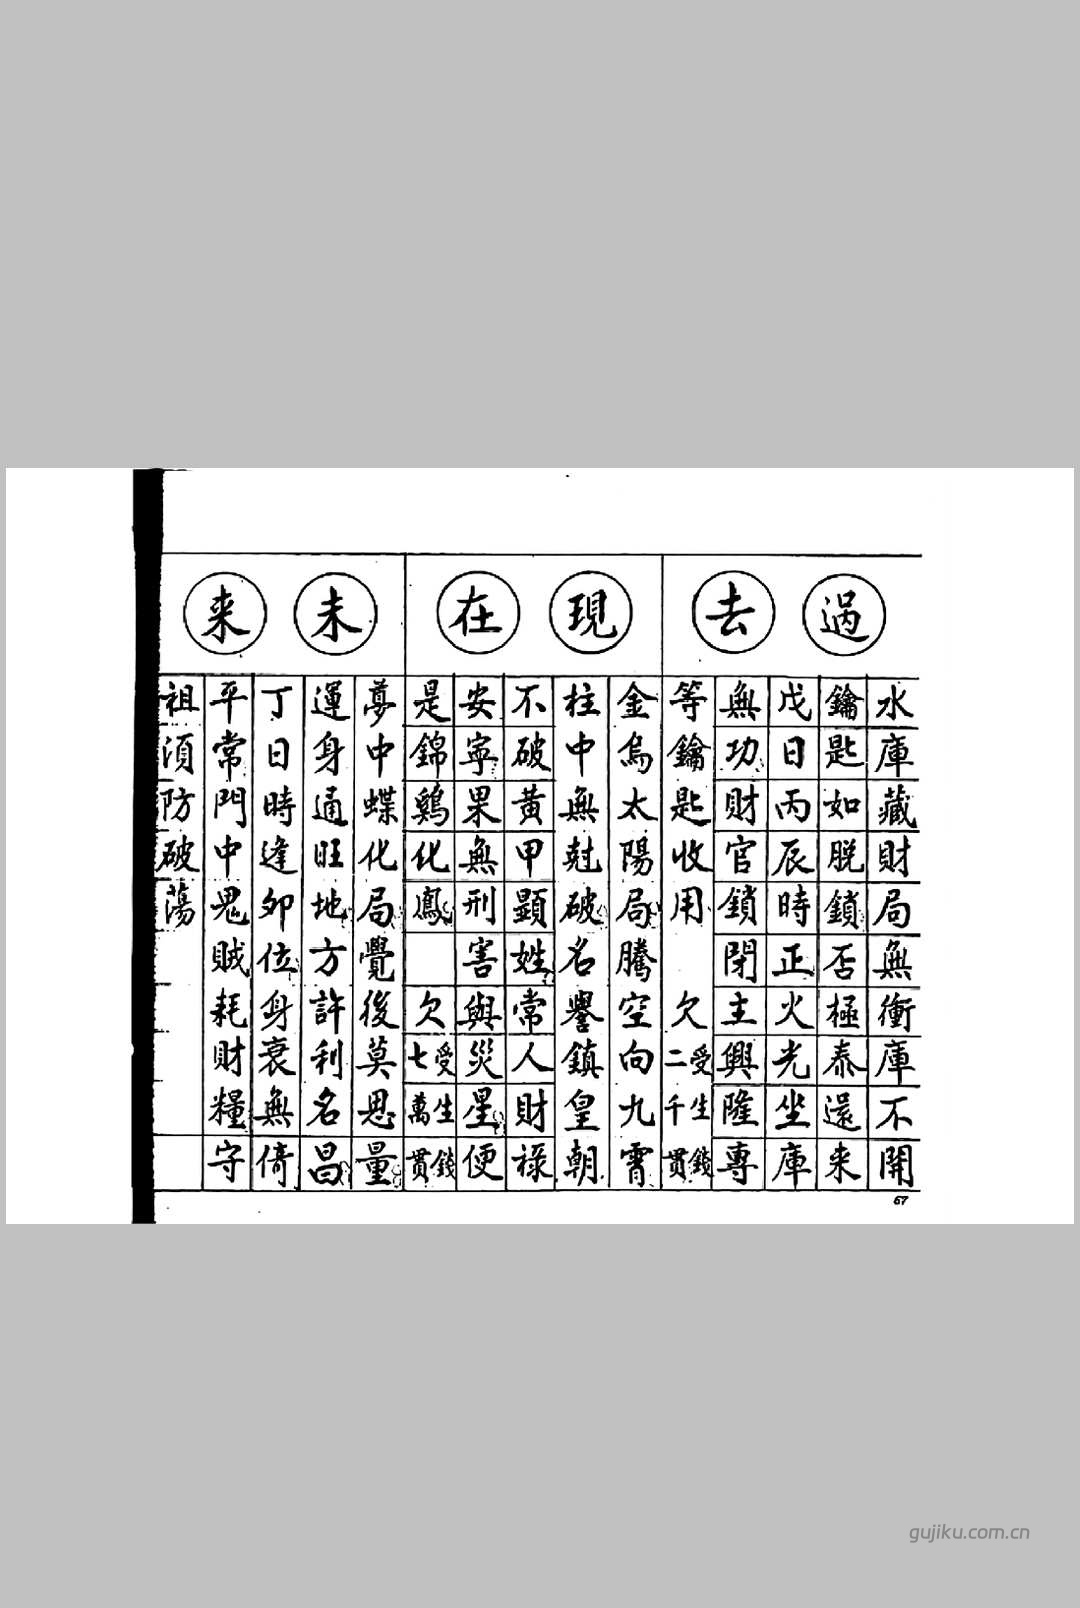 過去
水庫藏財局無衝庫不開
鑰匙如脫鎖否極泰還来
戊日丙辰時正火光坐庫
無功財官鎖閉主興隆專
等鑰匙收用 欠受生錢二千貫
現在
金烏太陽局騰空向九霄
柱中無尅破名譽鎮皇朝
不破黃甲顯姓常人財祿
安寧果無刑害與災星便
是錦鷄化鳳 欠受生錢七萬貫
未来
夢中蝶化局覺後莫思量
運身通旺地方許利名昌
丁日時逢卯位身衰無倚
平常門中鬼賊耗財糧守
祖須防破蕩
67
gujiku.com.cn